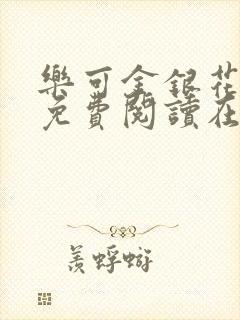 樂可金銀花
免費閱讀在
羨蜉蝣